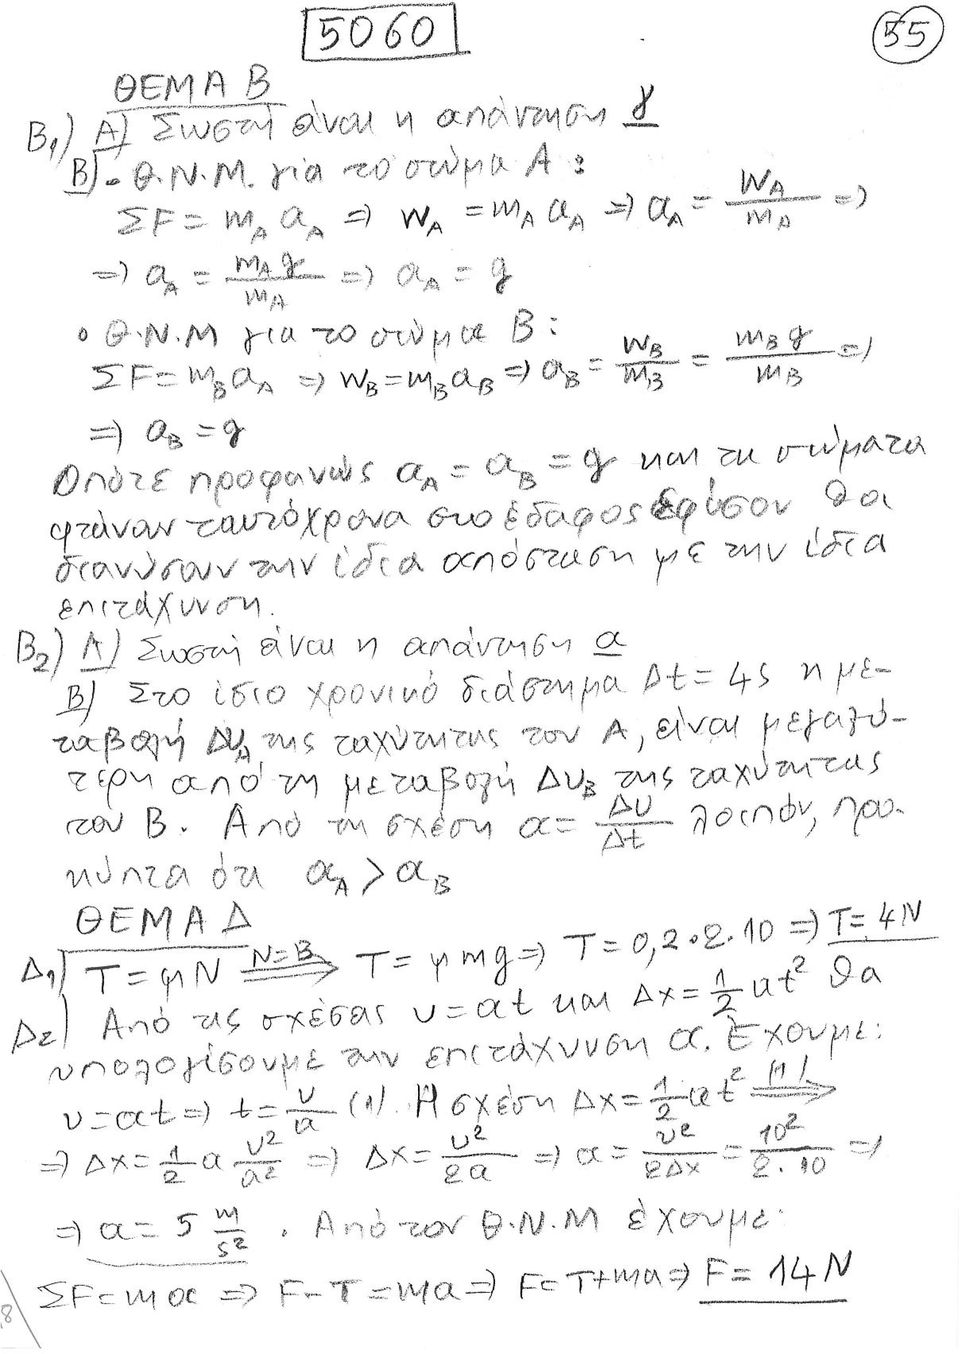 5060
55
ΘΕΜΑ Β
Β₁) Α) Σωστή είναι η απάντηση γ
Β) • Θ.Ν.Μ. για το σώμα Α:
ΣF = m_A a_A ⇒ W_A = m_A a_A ⇒ a_A = W_A / m_A ⇒
⇒ a_A = m_A g / m_A ⇒ a_A = g
• Θ.Ν.Μ για το σώμα Β:
ΣF = m_B a_A ⇒ W_B = m_B a_B ⇒ a_B = W_B / m_B = m_B g / m_B ⇒
⇒ a_B = g
Οπότε προφανώς a_A = a_B = g και τα σώματα
φτάνουν ταυτόχρονα στο έδαφος εφόσον θα
διανύσουν την ίδια απόσταση με την ίδια
επιτάχυνση.
Β₂) Α) Σωστή είναι η απάντηση α
Β) Στο ίδιο χρονικό διάστημα Δt = 4s η με-
ταβολή Δυ_A της ταχύτητας του Α, είναι μεγαλύ-
τερη από τη μεταβολή Δυ_B της ταχύτητας
του Β. Από τη σχέση a = Δυ / Δt λοιπόν, προ-
κύπτει ότι a_A > a_B
ΘΕΜΑ Δ
Δ₁) T = μN =(N=B)⇒ T = μmg ⇒ T = 0,2·2·10 ⇒ T = 4N
Δ₂) Από τις σχέσεις υ = at και Δx = 1/2 at² θα
υπολογίσουμε την επιτάχυνση a. Έχουμε:
υ = at ⇒ t = υ/a (1). Η σχέση Δx = 1/2 at² =(1)⇒
⇒ Δx = 1/2 a υ²/a² ⇒ Δx = υ²/2a ⇒ a = υ²/2Δx = 10²/2·10 ⇒
⇒ a = 5 m/s². Από τον Θ.Ν.Μ έχουμε:
ΣF = ma ⇒ F - T = ma ⇒ F = T + ma ⇒ F = 14 N